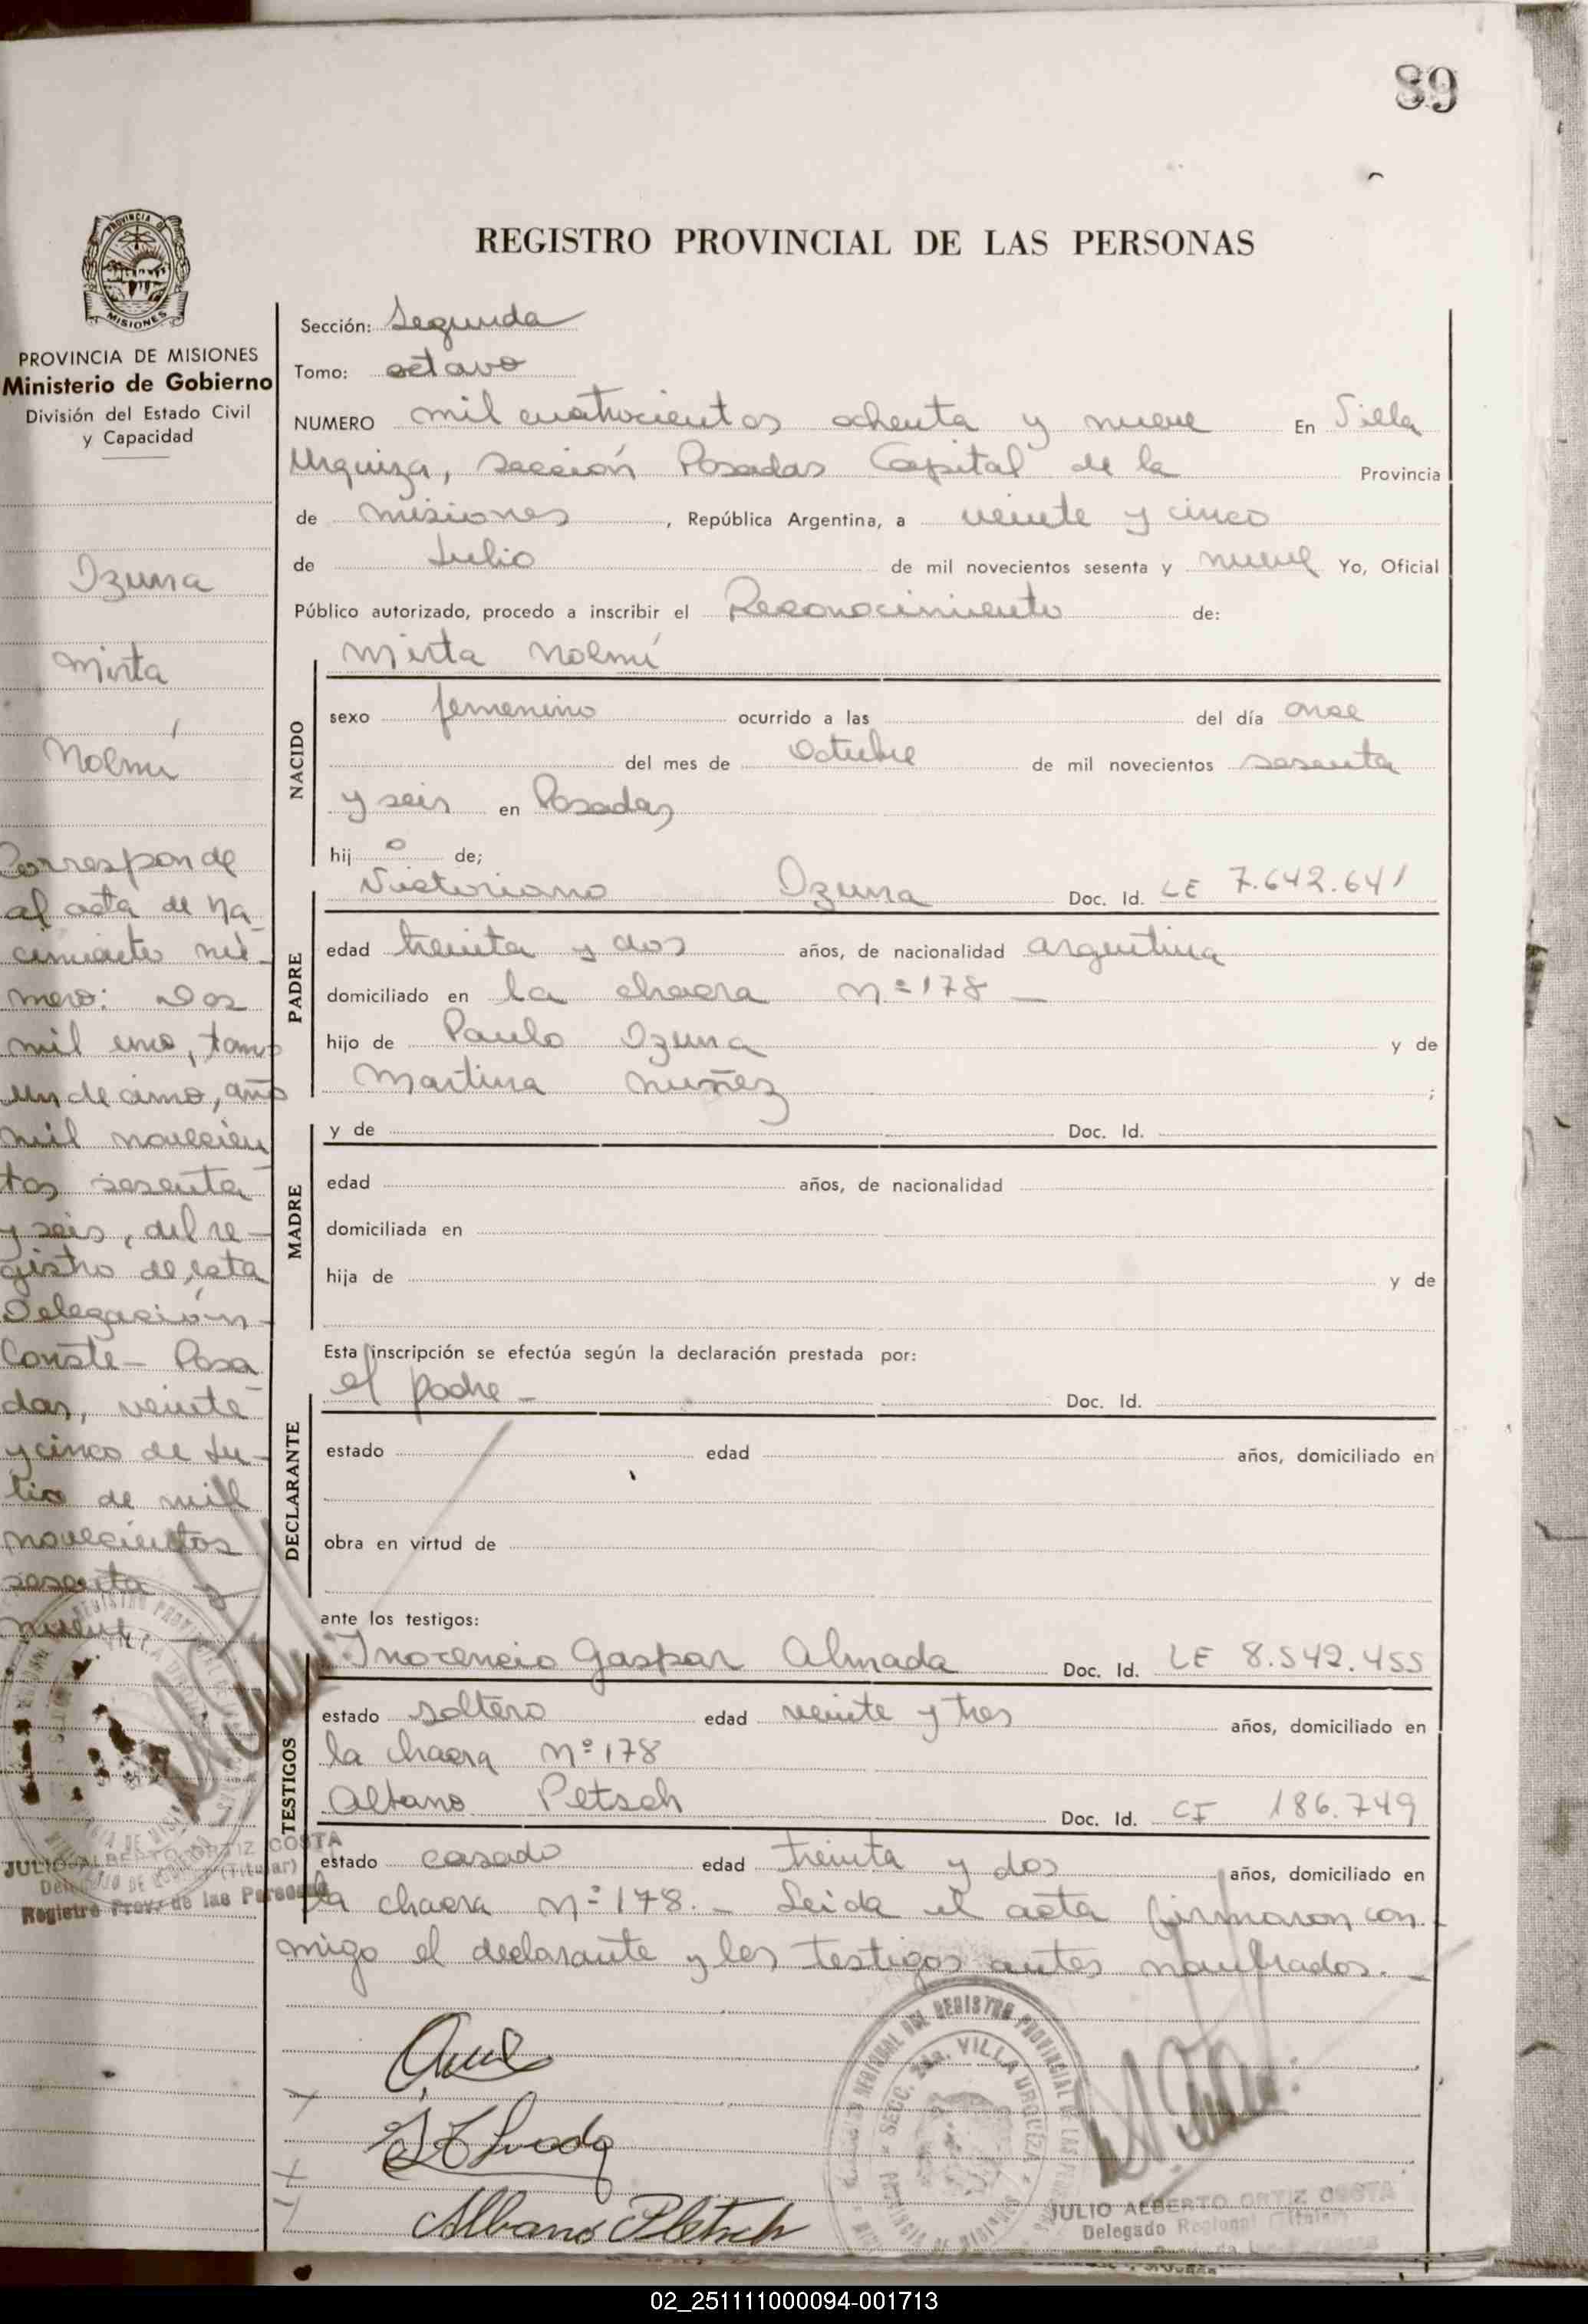 89
REGISTRO PROVINCIAL DE LAS PERSONAS
PROVINCIA DE MISIONES
Ministerio de Gobierno
División del Estado Civil
y Capacidad
Ozuna
Mirta
Noemí
Corresponde
al acta de na
cimiento nú-
mero: Dos
mil uno, tomo
undecimo, año
mil novecien
tos sesenta
y seis, del re-
gistro de esta
Delegación-
Conste- Posa
das, veinte
y cinco de Ju-
lio de mil
novecientos
sesenta y
nueve
JULIO ALBERTO ORTIZ COSTA
Registro Prov. de las Personas
Sección: Segunda
Tomo: octavo
NUMERO mil cuatrocientos ochenta y nueve En Villa
Urquiza, sección Posadas Capital de la Provincia
de Misiones, República Argentina, a veinte y cinco
de Julio de mil novecientos sesenta y nueve Yo, Oficial
Público autorizado, procedo a inscribir el Reconocimiento de:
Mirta Noemí
NACIDO
sexo femenino ocurrido a las del día once
del mes de Octubre de mil novecientos sesenta
y seis en Posadas
hij o de;
PADRE
Victoriano Ozuna Doc. Id. LE 7.642.641
edad treinta y dos años, de nacionalidad argentina
domiciliado en la chacra nº 178 -
hijo de Paulo Ozuna y de
Martina Nuñez ;
MADRE
y de Doc. Id.
edad años, de nacionalidad
domiciliada en
hija de y de
Esta inscripción se efectúa según la declaración prestada por:
el padre - Doc. Id.
DECLARANTE
estado edad años, domiciliado en
obra en virtud de
ante los testigos:
TESTIGOS
Inocencio Gaspar Almada Doc. Id. LE 8.542.455
estado soltero edad veinte y tres años, domiciliado en
la chacra nº 178
Albano Pletsch Doc. Id. CI 186.749
estado casado edad treinta y dos años, domiciliado en
la chacra nº 178. - Leida el acta firmaron con-
migo el declarante y los testigos antes nombrados. -
Albano Pletsch
JULIO ALBERTO ORTIZ COSTA
Delegado Regional (Titular)
02_251111000094-001713